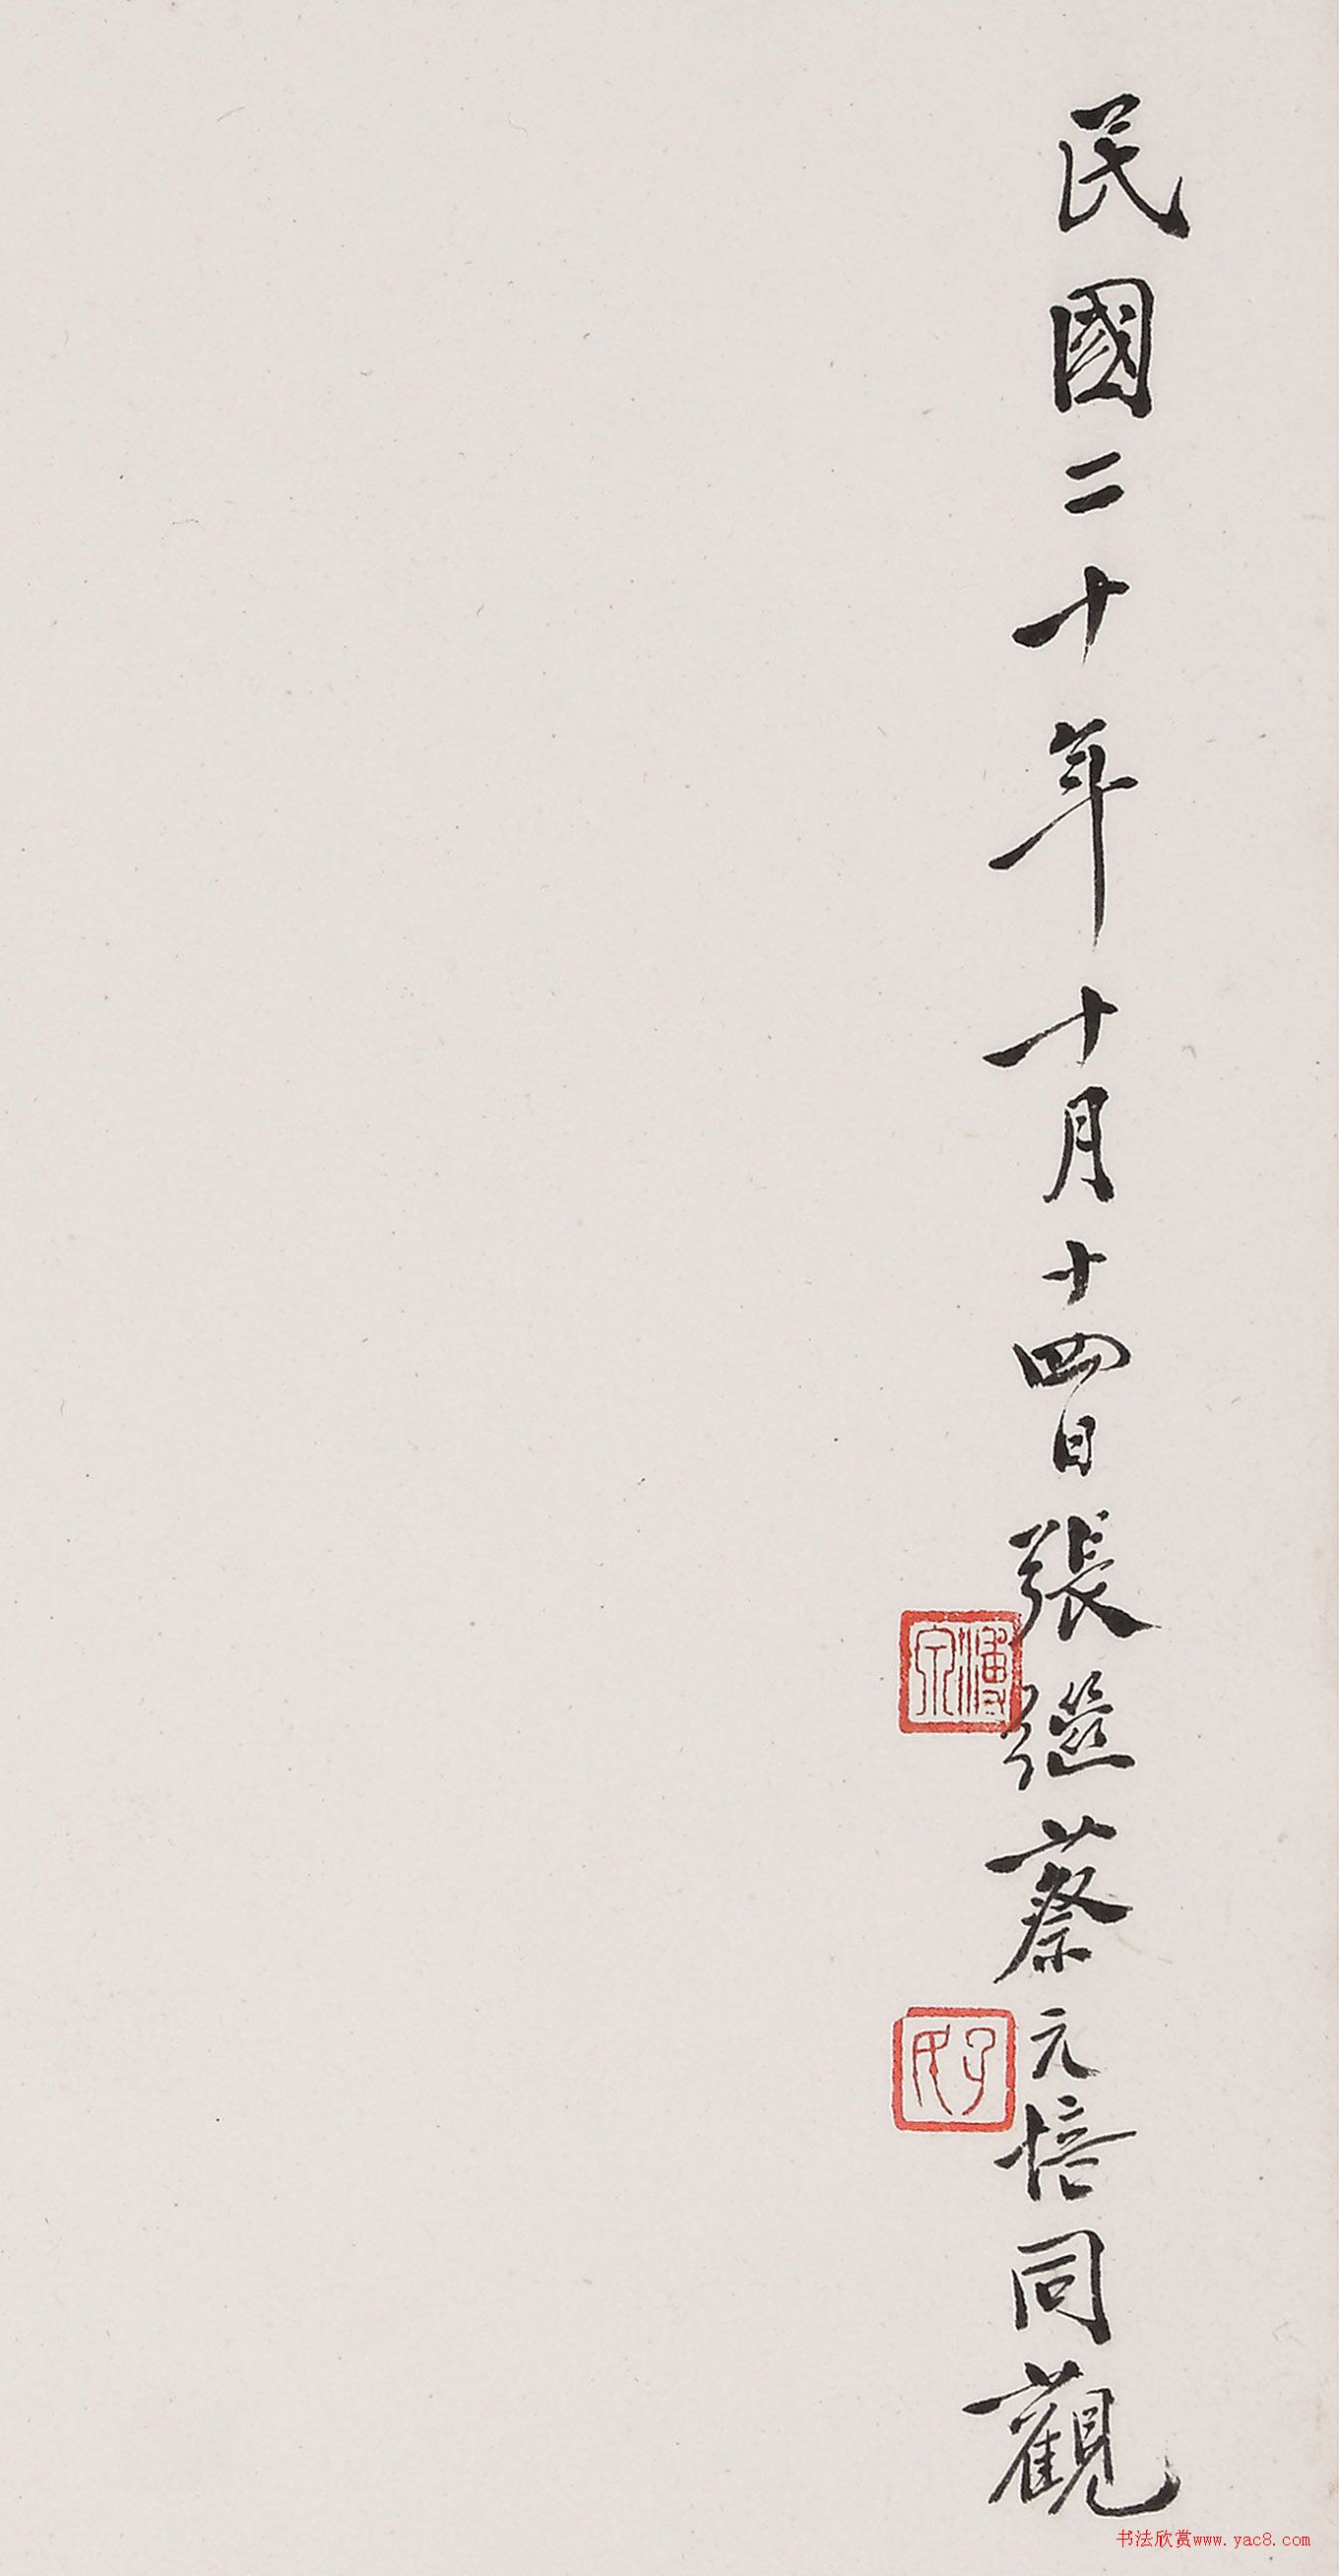 民國二十年十月十四日張繼蔡元培同觀
溥泉
孑民
书法欣赏www.yac8.com